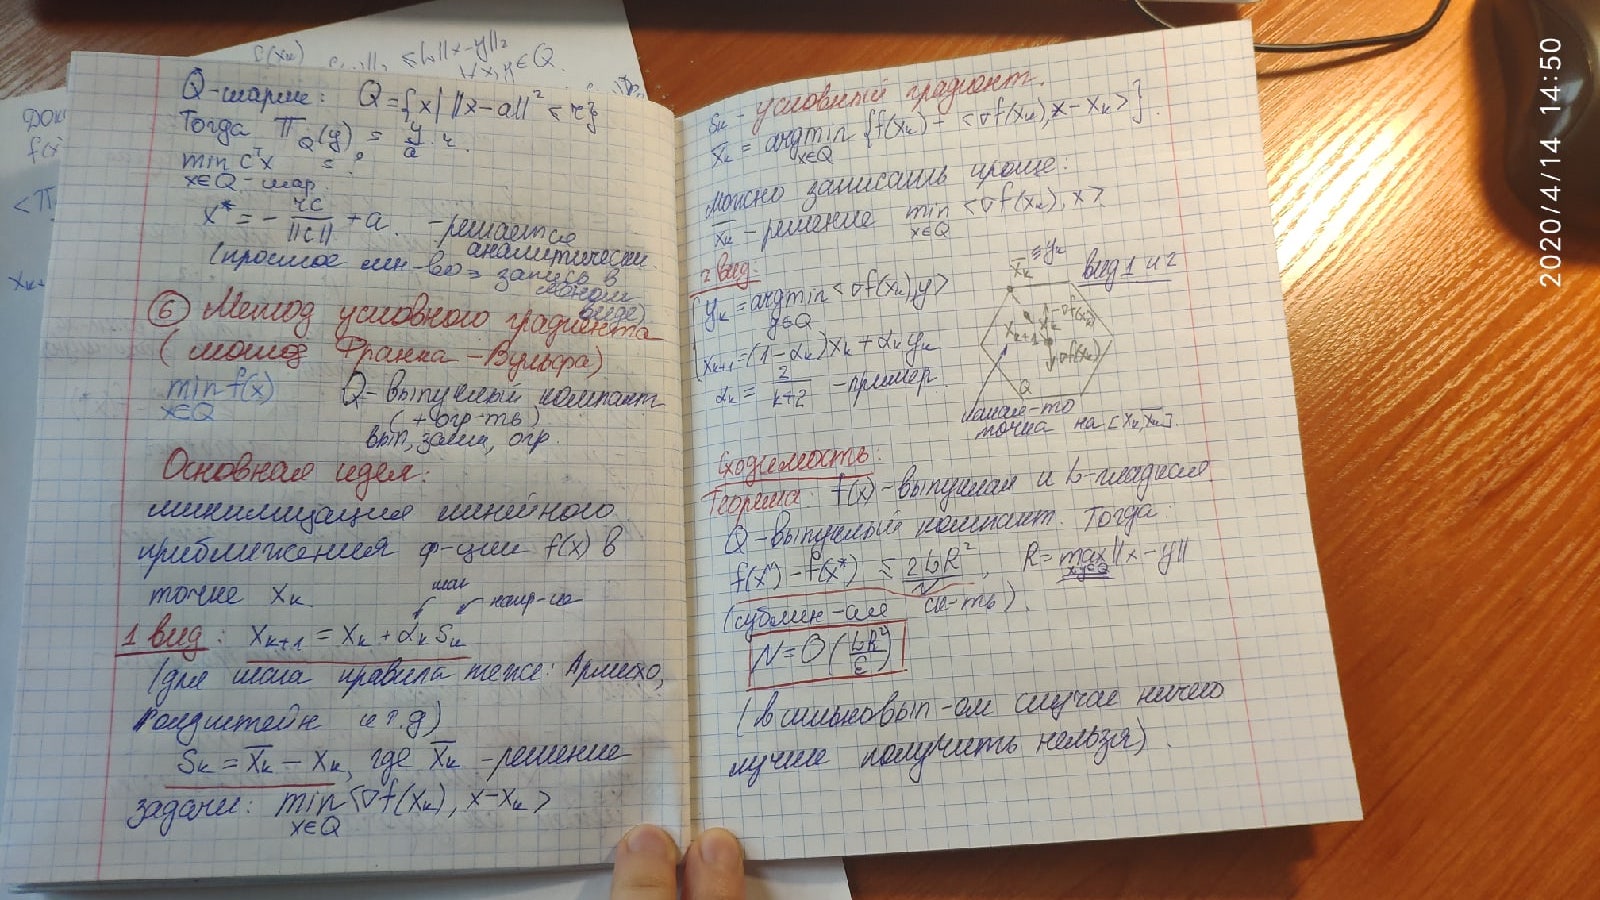 Q-шарик: Q={x| ||x-a||² ≤ r}
Тогда π_Q(y) = y/a · r.
min cᵀx = ?
x∈Q-шар.
x* = - rc/||c|| + a. -решается
аналитически
(простое мн-во => запись в
явном
виде)
⑥ Метод условного градиента
(метод Франка-Вульфа)
min f(x) Q-выпуклый компакт
x∈Q (+огр-ть)
вып, замк, огр.
Основная идея:
минимизация линейного
приближения ф-ции f(x) в
точке x_k.
шаг
напр-ие
1 вид: x_{k+1} = x_k + α_k s_k
(для шага правила теже: Армихо,
Голдштейн и т.д)
s_k = x̄_k - x_k, где x̄_k -решение
задачи: min <∇f(x_k), x-x_k>
x∈Q
s_k - условный градиент.
x̄_k = argmin {f(x_k) + <∇f(x_k), x-x_k>}.
x∈Q
Можно записать проще:
x̄_k -решение min <∇f(x_k), x>
x∈Q
2 вид:
y_k = argmin <∇f(x_k), y>
y∈Q
x_{k+1} = (1-α_k)x_k + α_k y_k
α_k = 2/(k+2) -пример.
x̄_k = y_k
вид 1 и 2
-∇f(x_k)
x_k
x_{k+1}
∇f(x_k)
Q
какая-то
точка на [x_k, x̄_k].
Сходимость:
Теорема: f(x)-выпуклая и L-гладкая
Q-выпуклый компакт. Тогда:
f(x^N) - f(x*) ≤ 2LR²/N, R = max ||x-y||
x,y∈Q
(сублин-ая ск-ть).
N = O(LR²/ε)
(в сильновып-ом случае ничего
лучше получить нельзя).
2020/4/14 14:50